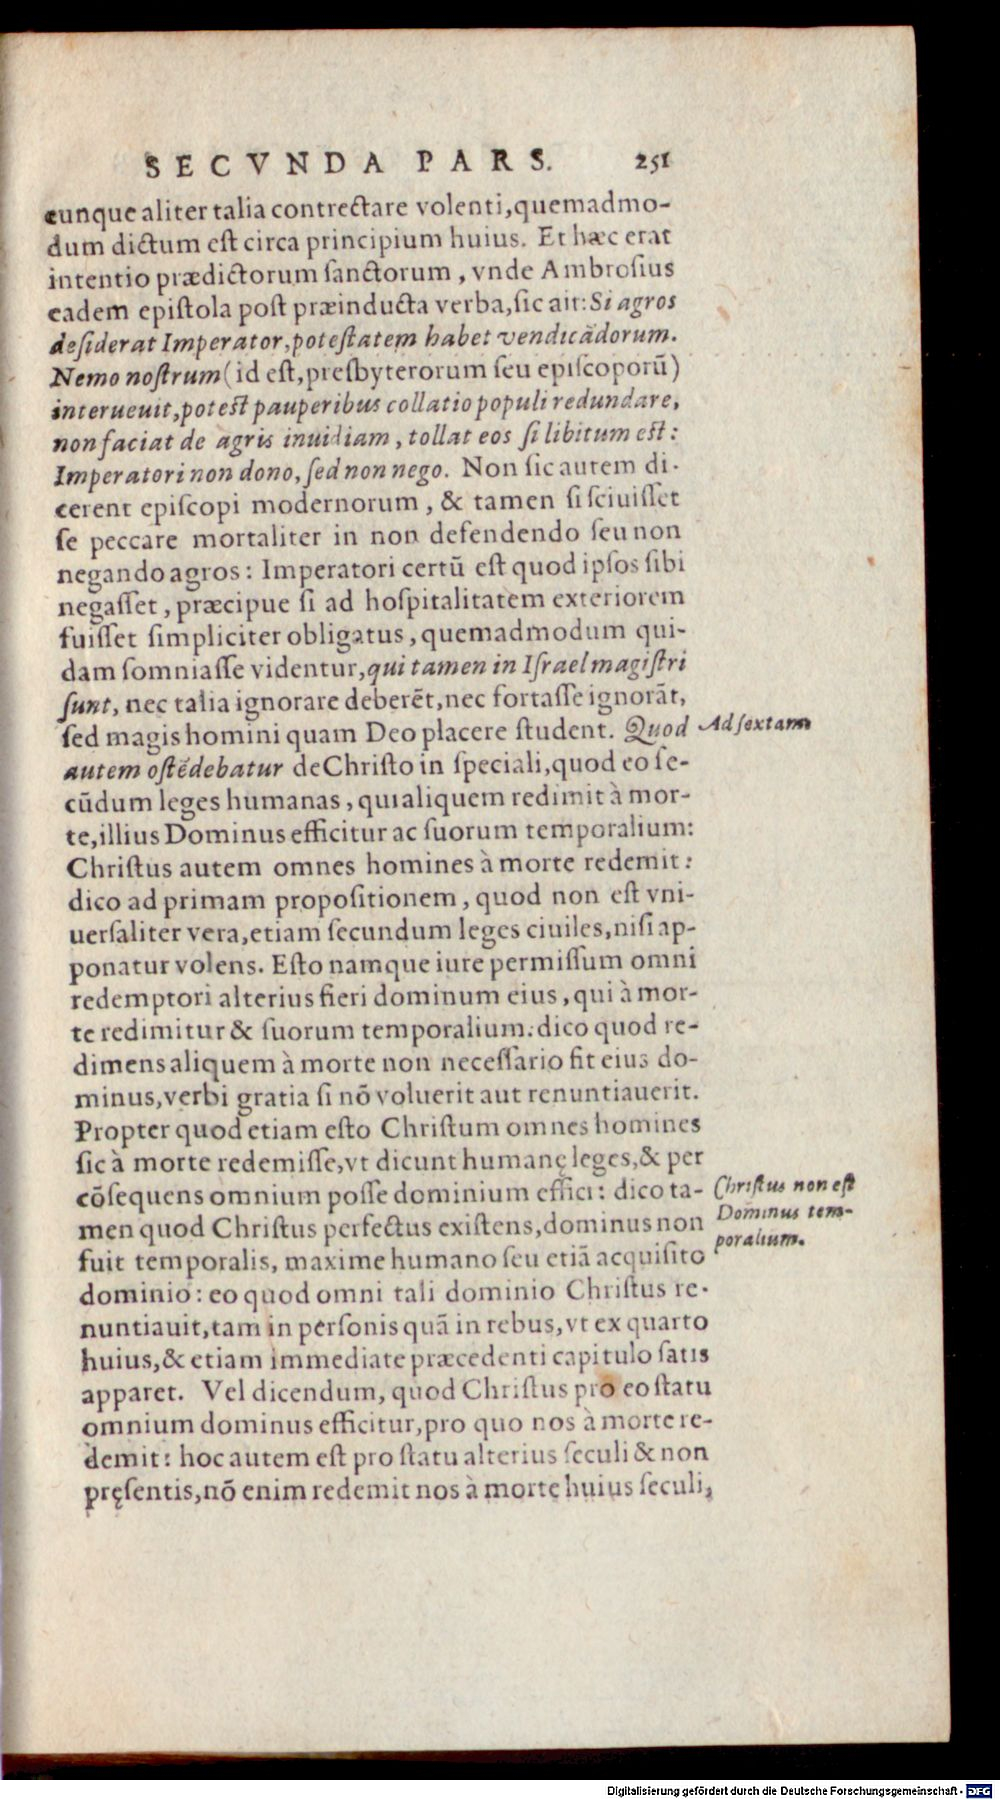 SECVNDA PARS. 251
cunque aliter talia contrectare volenti, quemadmo-
dum dictum eſt circa principium huius. Et hæc erat
intentio prædictorum ſanctorum, vnde Ambroſius
eadem epiſtola poſt præinducta verba, ſic ait: Si agros
deſiderat Imperator, poteſtatem habet vendicãdorum.
Nemo noſtrum (id eſt, preſbyterorum ſeu epiſcoporũ)
interueuit, poteſt pauperibus collatio populi redundare,
non faciat de agris inuidiam, tollat eos ſi libitum eſt:
Imperatori non dono, ſed non nego. Non ſic autem di-
cerent epiſcopi modernorum, & tamen ſi ſciuiſſet
ſe peccare mortaliter in non defendendo ſeu non
negando agros: Imperatori certũ eſt quod ipſos ſibi
negaſſet, præcipue ſi ad hoſpitalitatem exteriorem
fuiſſet ſimpliciter obligatus, quemadmodum qui-
dam ſomniaſſe videntur, qui tamen in Iſrael magiſtri
ſunt, nec talia ignorare deberẽt, nec fortaſſe ignorãt,
ſed magis homini quam Deo placere ſtudent. Quod
Ad ſextam
autem oſtẽdebatur de Chriſto in ſpeciali, quod eo ſe-
cũdum leges humanas, qui aliquem redimit à mor-
te, illius Dominus efficitur ac ſuorum temporalium:
Chriſtus autem omnes homines à morte redemit:
dico ad primam propoſitionem, quod non eſt vni-
uerſaliter vera, etiam ſecundum leges ciuiles, niſi ap-
ponatur volens. Eſto namque iure permiſſum omni
redemptori alterius fieri dominum eius, qui à mor-
te redimitur & ſuorum temporalium: dico quod re-
dimens aliquem à morte non neceſſario fit eius do-
minus, verbi gratia ſi nõ voluerit aut renuntiauerit.
Propter quod etiam eſto Chriſtum omnes homines
ſic à morte redemiſſe, vt dicunt humanę leges, & per
cõſequens omnium poſſe dominium effici: dico ta-
men quod Chriſtus perfectus exiſtens, dominus non
Chriſtus non eſt
Dominus tem-
poralium.
fuit temporalis, maxime humano ſeu etiã acquiſito
dominio: eo quod omni tali dominio Chriſtus re-
nuntiauit, tam in perſonis quã in rebus, vt ex quarto
huius, & etiam immediate præcedenti capitulo ſatis
apparet. Vel dicendum, quod Chriſtus pro eo ſtatu
omnium dominus efficitur, pro quo nos à morte re-
demit: hoc autem eſt pro ſtatu alterius ſeculi & non
pręſentis, nõ enim redemit nos à morte huius ſeculi,
Digitalisierung gefördert durch die Deutsche Forschungsgemeinschaft - DFG